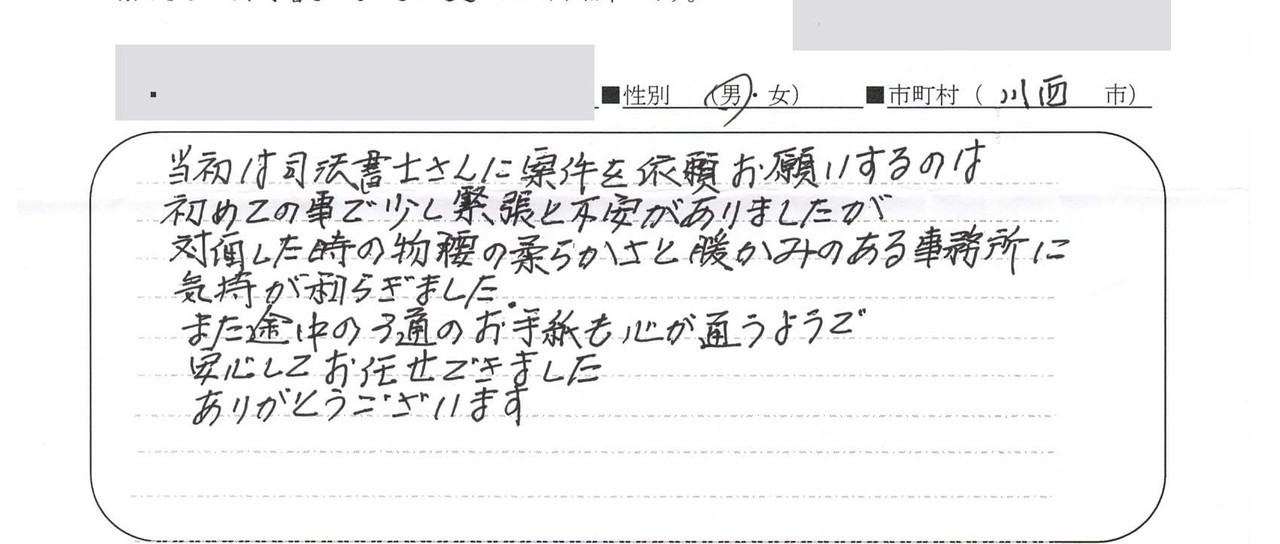 ■性別 (男・女) ■市町村 ( 川西 市)
当初は司法書士さんに案件を依頼お願いするのは
初めての事で少し緊張と不安がありましたが
対面した時の物腰の柔らかさと暖かみのある事務所に
気持が和らぎました.
また途中の3通のお手紙も心が通うようで
安心してお任せできました
ありがとうございます